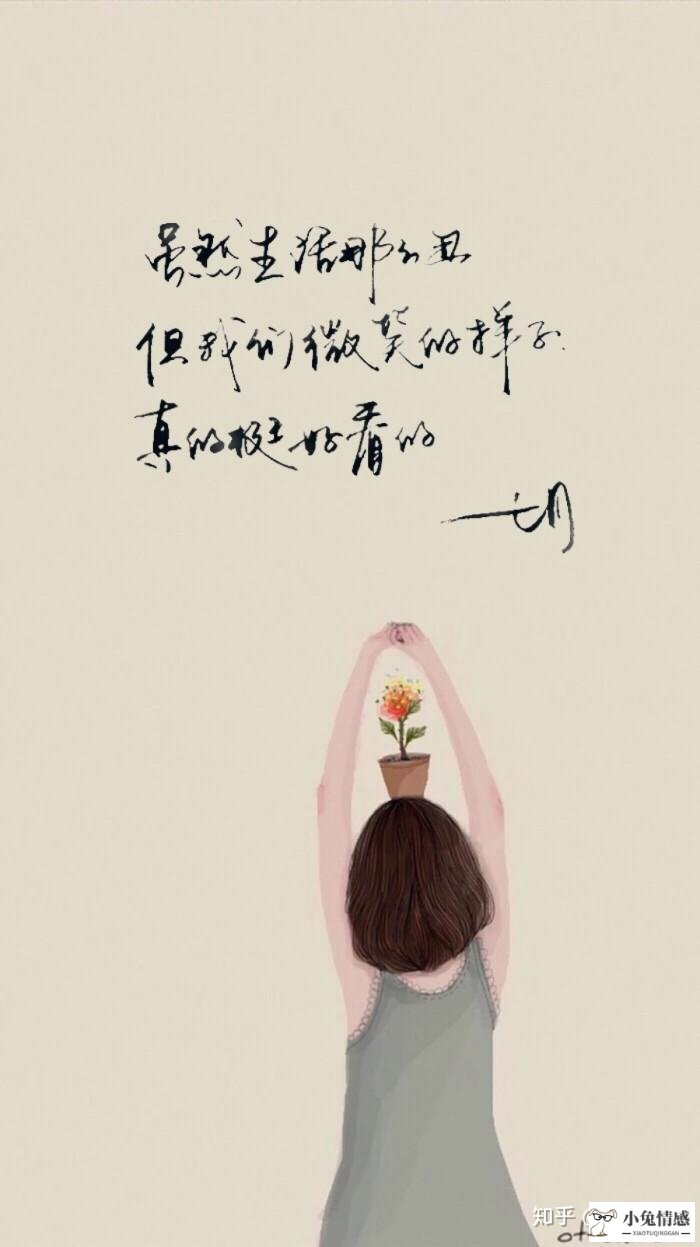 虽然生活那么丑
但我们微笑的样子
真的挺好看的
一七月
知乎
小兔情感
XIAOTUQINGGAN